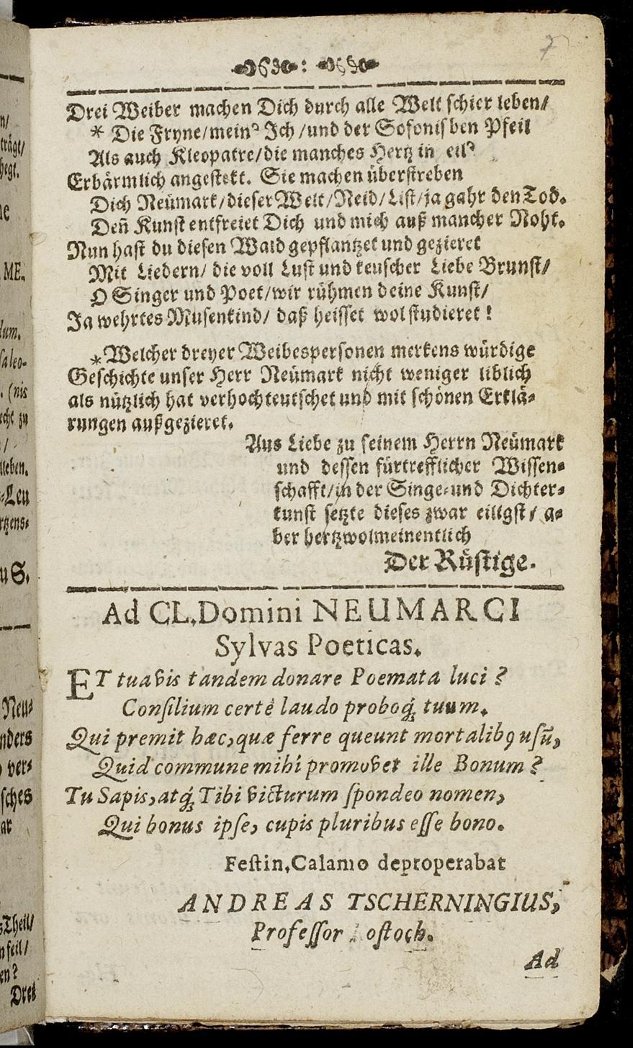 7
Drei Weiber machen Dich durch alle Welt schier leben/
* Die Fryne/mein' Ich/und der Sofonisben Pfeil
Als auch Kleopatre/die manches Hertz in eil'
Erbärmlich angestekt. Sie machen überstreben
Dich Neümark/dieser Welt/Neid/List/ja gahr den Tod.
Deñ Kunst entfreiet Dich und mich auß mancher Noht.
Nun hast du diesen Wald gepflantzet und gezieret
Mit Liedern/ die voll Lust und keuscher Liebe Brunst/
O Singer und Poet/wir rühmen deine Kunst/
Ja wehrtes Musenkind/ daß heisset wol studieret!
* Welcher dreyer Weibespersonen merkens würdige
Geschichte unser Herr Neümark nicht weniger liblich
als nützlich hat verhochteutschet und mit schönen Erklä-
rungen außgezieret.
Aus Liebe zu seinem Herrn Neümark
und dessen fürtrefflicher Wissen-
schafft/in der Singe-und Dichter-
kunst setzte dieses zwar eiligst/ a-
ber hertzwolmeinentlich
Der Rüstige.
Ad CL.Domini NEUMARCI
Sylvas Poeticas.
ET tua vis tandem donare Poemata luci?
Consilium certè laudo proboq́; tuum.
Qui premit hæc, quæ ferre queunt mortalibꝰ usũ,
Quid commune mihî promovet ille Bonum?
Tu Sapis, atq́; Tibi victurum spondeo nomen,
Qui bonus ipse, cupis pluribus esse bono.
Festin. Calamo deproperabat
ANDREAS TSCHERNINGIUS,
Professor ostoch.
Ad
ME.
Drei